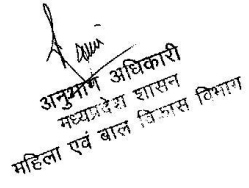 अनुभाग अधिकारी
मध्यप्रदेश शासन
महिला एवं बाल विकास विभाग